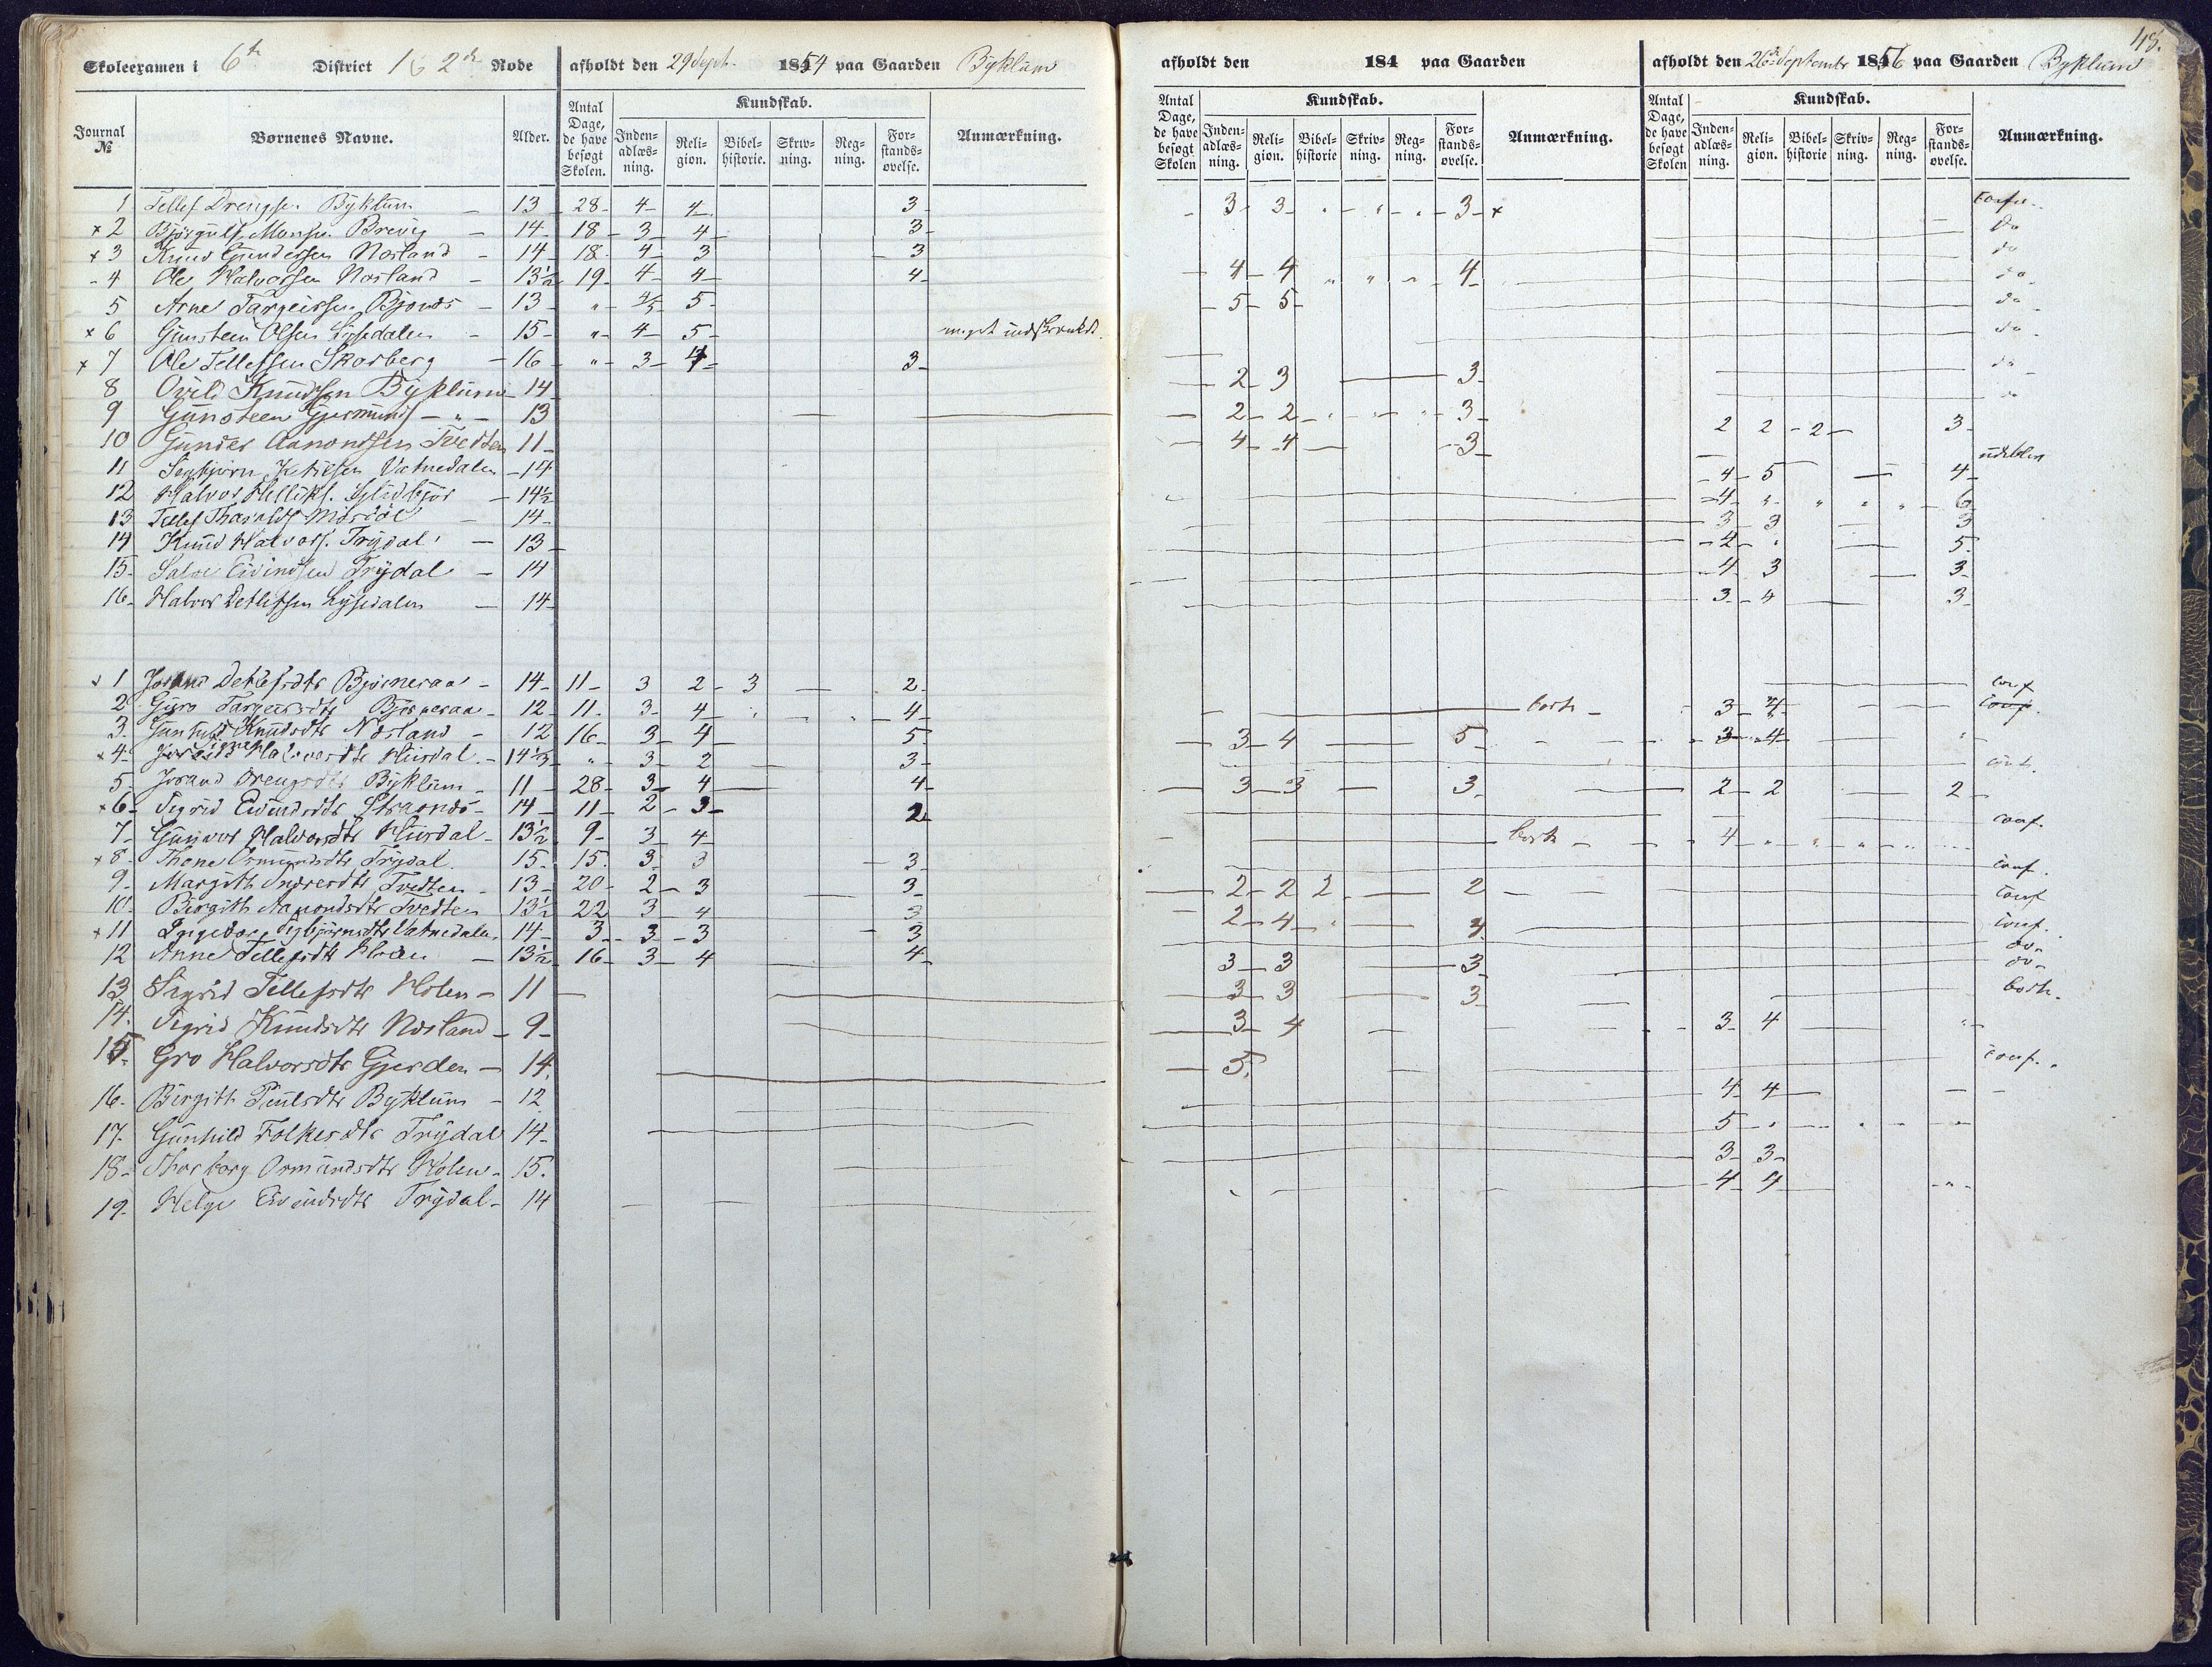 48.
Skoleexamen i 6te District 1 & 2den Rode afholdt den 29 Sept. 1854 paa Gaarden Byklum
afholdt den 184 paa Gaarden
afholdt den 26de September 1856 paa Gaarden Byklum
Journal № Børnenes Navne. Alder. Antal Dage, de have besøgt Skolen. Kundskab. Indenadlæsning. Religion. Bibelhistorie. Skrivning. Regning. Forstandsøvelse. Anmærkning.
Antal Dage, de have besøgt Skolen Kundskab. Indenadlæsning. Religion. Bibelhistorie Skrivning. Regning. Forstandsøvelse. Anmærkning.
Antal Dage, de have besøgt Skolen Kundskab. Indenadlæsning. Religion. Bibelhistorie Skrivning. Regning. Forstandsøvelse. Anmærkning.
1 Tellef Drengsen Byklum - 13 28- 4- 4- 3- 3- 3- 3- x
x 2 Bjørgulf Monsen Brevig - 14- 18- 3- 4- 3- do
x 3 Knud Gundersen Nosland - 14 18- 4- 3 3 do
- 4 Ole Halvorsen Nosland - 13½ 19- 4- 4- 4- 4- 4 " " " 4- do
5 Arne Targeirssen - 13 " 4/5 5- - 5- 5- do
x 6 Gunsteen Olsen Lysedalen - 15- " 4- 5- meget indskrænkt. do
x 7 Ole Tellefsen Skarberg - 16 " 3- 4- 3- do
8 Knudsen Byklum 14 2- 3 3- do
9 Gunsteen Gjermunds - " - 13 2- 2- 3- 2 2 - 2- 3-
10 Gunder Aanondsen Tvedten 11- 4- 4- 3-
11 Sigbjørn Ketilsen Vatnedalen - 14 4- 5 4-
12 Halvor - 14½ 4- " " " " 6
13 Tellef - 14- 3- 3 3
14 Knud Halvors. Trydal - 13 2- " 5.
15- Salve Eivindsen Trydal - 14 4- 3 3-
16- Halvor Detlefsen Lysedalen - 14- 3- 4 3-
1 Detlefsdtr Bjørneraa - 14- 11- 3 2- 3 2- conf
2 Guro Targeirsdtr Bjørneraa - 12- 11- 3- 4- 4- bort - 3- 4- conf.
3. Gunhild Knudsdtr Nosland - 12 16- 3- 4- 5. 3- 4 5- 3- 4-
x 4- Halvorsdtr Husdal - 14½ " 3- 2 3-
5. Jorand Drengsdtr Byklum - 11 28- 3- 4 4- 3- 3 3- 2- 2 2-
x 6- Sigrid Eivindsdtr - 14 11- 2- 3- 2- conf.
7- Gunvor Halvorsdtr Husdal - 13½ 9- 3- 4- bort - 4-
x 8- Thone Ormundsdtr Trydal 15- 15. 3- 3 3- conf.
9- Margith Tvedten - 13- 20- 2- 3 3- 2- 2 2 2 conf
10- Birgith Aanondsdtr Tvedten 13½ 22 3- 4 3 2- 4- 4. conf.
x 11 Ingeborg Sigbjørnsdtr Vatnedalen. 14- 3- 3- 3 3 do-
12 Anne Tellefsdtr - 13½ 16- 3- 4 4- 3- 3 3 do-
13 Sigrid Tellefsdtr Holen - 11 3- 3 3- bort.
14. Sigrid Knudsdtr Nosland - 9- 3- 4 3- 4
15- Gro Halvorsdtr Gjerden - 14. 5. conf.
16- Birgith Paulsdtr Byklum - 12 4- 4-
17- Gunhild Folkesdtr Trydal 14- 5-
18- Thorborg Ormundsdtr Holen - 15. 3- 3-
19- Helge Eivindsdtr Trydal - 14 4- 4